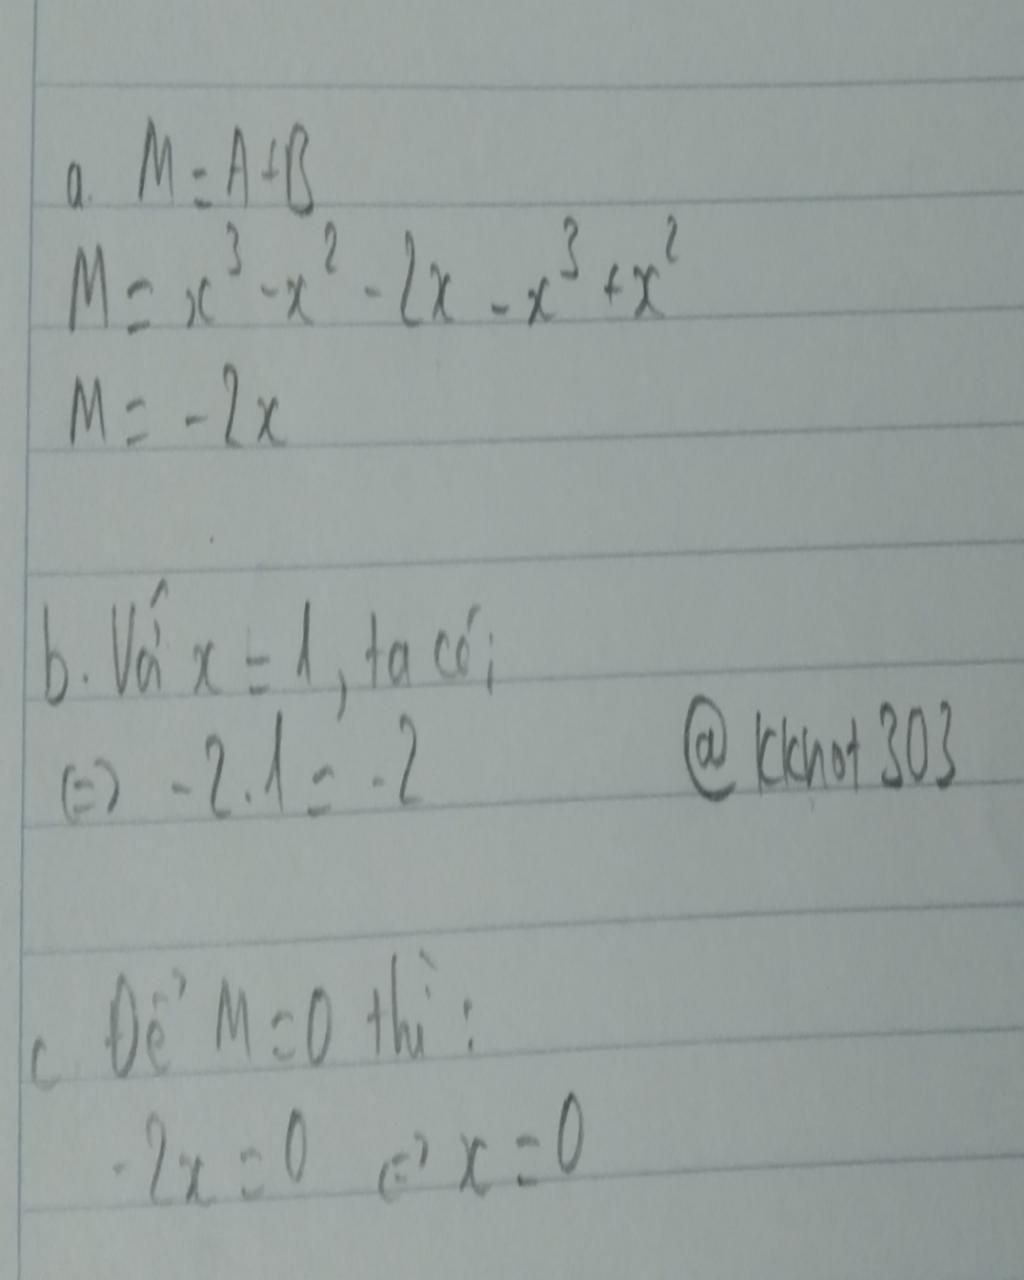 a. M = A + B
M = x³ - x² - 2x - x³ + x²
M = -2x
b. Với x = 1, ta có:
<=> -2.1 = -2
@kknot303
c. Để M = 0 thì:
-2x = 0 <=> x = 0